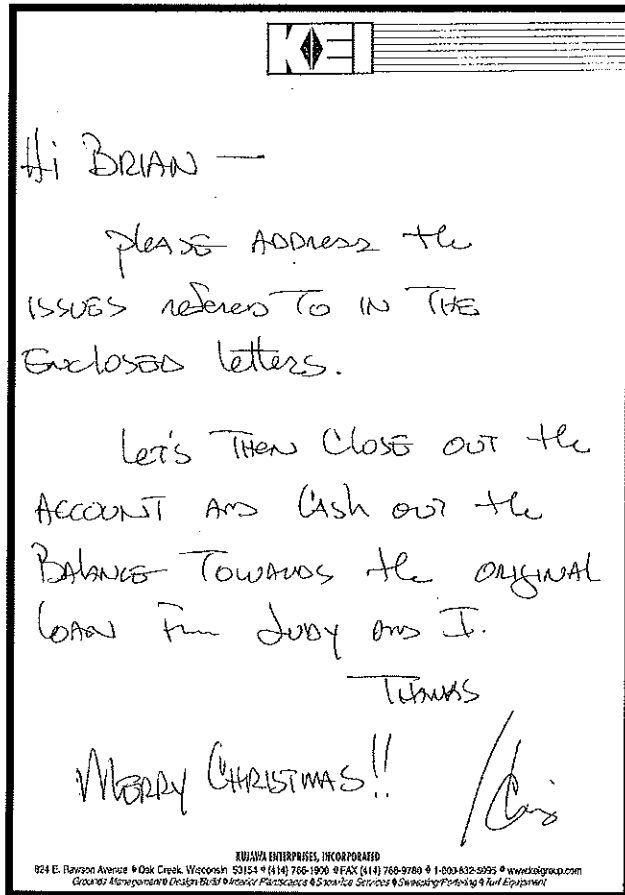 KEI
Hi BRIAN —
please ADDRESS the
ISSUES refered TO IN THE
ENCLOSED letters.
Let's THEN Close OUT the
ACCOUNT AND CASh OUT the
BALANCE TOWARDS the ORIGINAL
LOAN From JUDY AND I.
THANKS
MERRY CHRISTMAS!!
KUJAWA ENTERPRISES, INCORPORATED
824 E. Rawson Avenue Oak Creek, Wisconsin 53154 (414) 766-1900 FAX (414) 766-9780 1-800-832-5095 www.keigroup.com
Grounds Management Design/Build Interior Plantscapes Snow/Ice Services Sweeping/Painting Turf Equipment